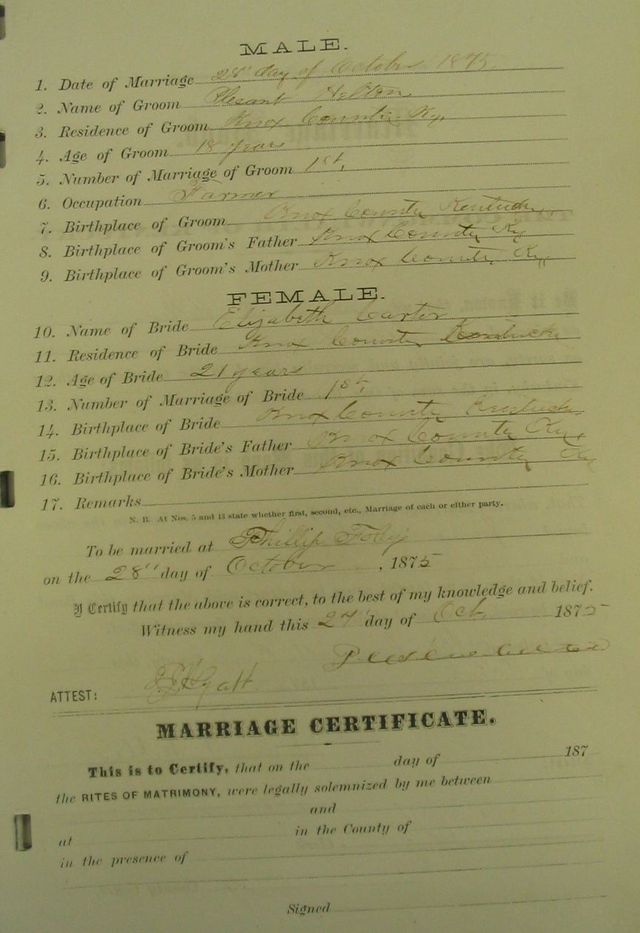 MALE.
1. Date of Marriage 28" day of October 1875
2. Name of Groom Plesant Helton
3. Residence of Groom Knox County Ky
4. Age of Groom 18 years
5. Number of Marriage of Groom 1st,
6. Occupation Farmer
7. Birthplace of Groom Knox County Kentucky
8. Birthplace of Groom's Father Knox County Ky
9. Birthplace of Groom's Mother Knox County Ky
FEMALE.
10. Name of Bride Elizabeth Carter
11. Residence of Bride Knox County Kentucky
12. Age of Bride 21 years
13. Number of Marriage of Bride 1st,
14. Birthplace of Bride Knox County Kentucky
15. Birthplace of Bride's Father Knox County Ky
16. Birthplace of Bride's Mother Knox County Ky
17. Remarks
N. B. At Nos. 5 and 13 state whether first, second, etc., Marriage of each or either party.
To be married at Phillip Foley
on the 28" day of October, 1875
I Certify that the above is correct, to the best of my knowledge and belief.
Witness my hand this 27" day of Oct 1875
ATTEST: Hyatt
MARRIAGE CERTIFICATE.
This is to Certify, that on the day of 187
the RITES OF MATRIMONY, were legally solemnized by me between
and
at in the County of
in the presence of
Signed